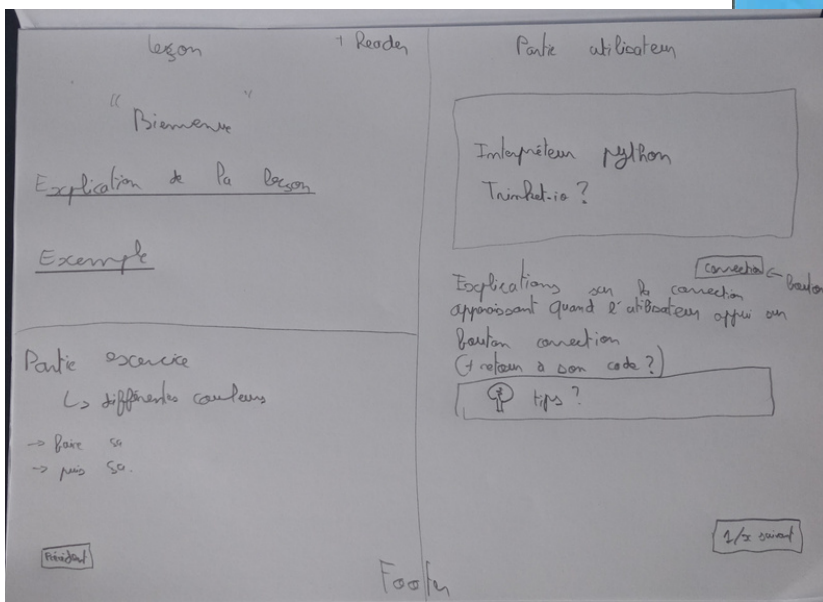 leçon
+ Header
"Bienvenue"
Explication de la leçon
Exemple
Partie exercice
↳ différentes couleurs
→ faire sa
→ puis sa.
Précédent
Partie utilisateur
Interpréteur python
Trinket.io ?
correction ← bouton
Explications sur la correction
apparaissant quand l'utilisateur appui sur
bouton correction
(+ retour à son code ?)
tips ?
1/x suivant
Footer